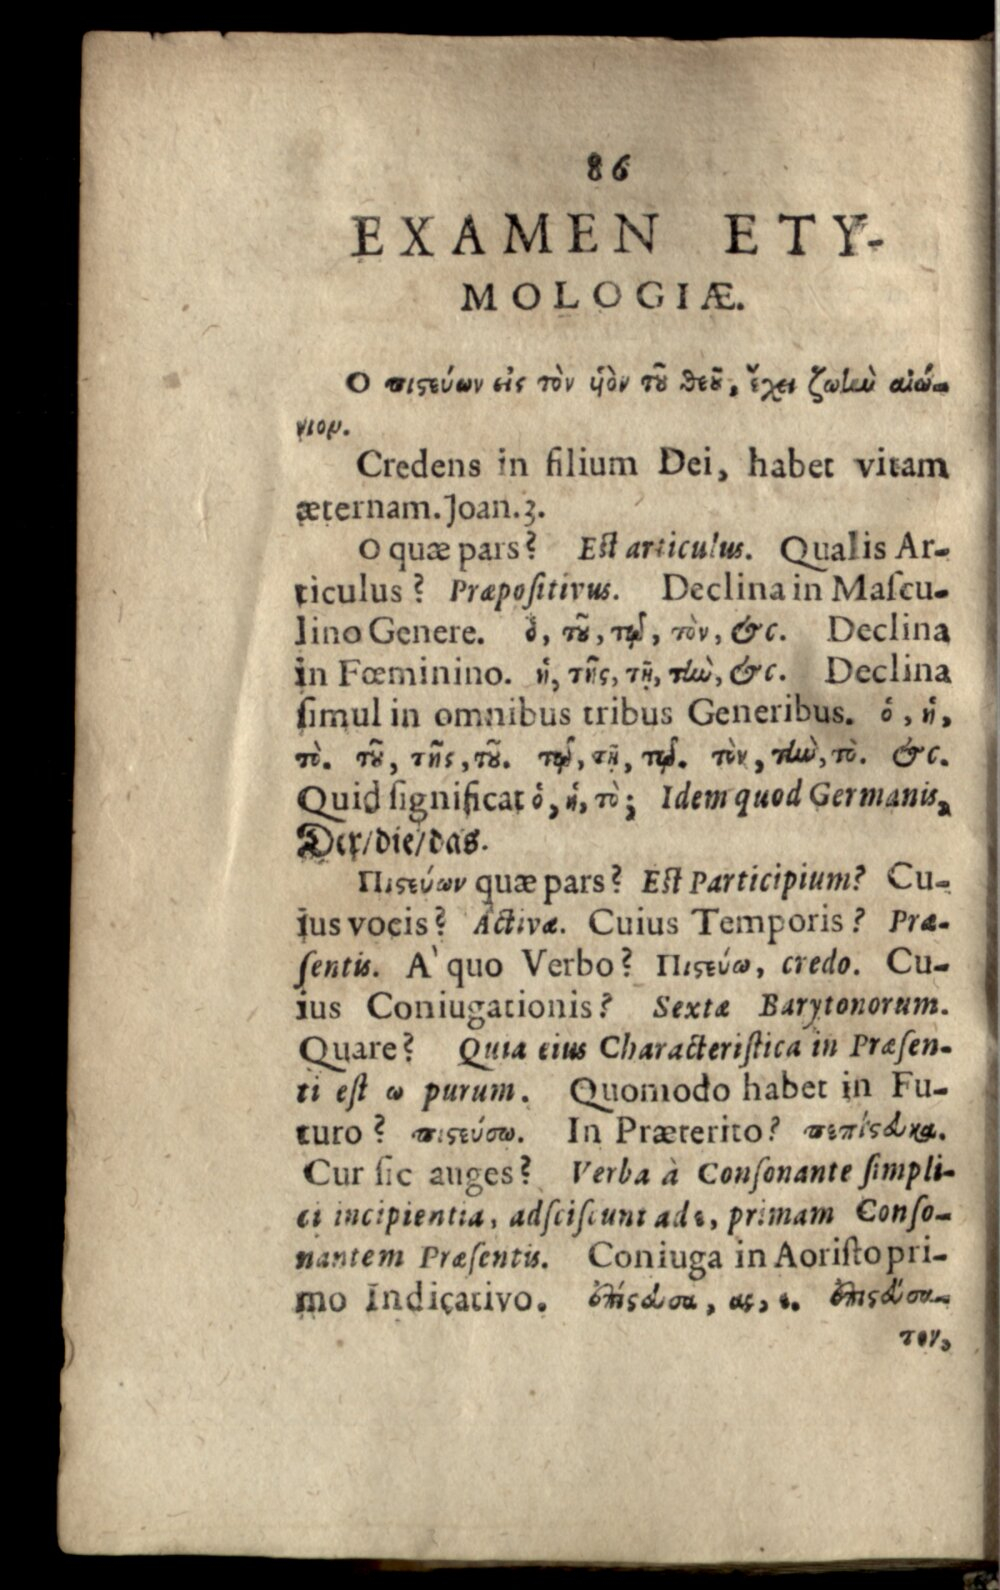 86
EXAMEN ETY-
MOLOGIÆ.
Ο πιϛεύων εἰς τὸν ὑὸν τȣ͂ θεȣ͂, ἔχει ζωὴν αἰώ-
νιον.
Credens in filium Dei, habet vitam
æternam. Joan. 3.
O quæ pars? Eſt articulus. Qualis Ar-
ticulus? Præpoſitivus. Declina in Maſcu-
lino Genere. ὁ, τȣ͂, τῷ, τὸν, &c. Declina
in Fœminino. ἡ, τῆς, τῇ, τὴν, &c. Declina
ſimul in omnibus tribus Generibus. ὁ, ἡ,
τὸ. τȣ͂, τῆς, τȣ͂. τῷ, τῇ, τῷ. τὸν, τὴν, τὸ. &c.
Quid ſignificat ὁ, ἡ, τὸ; Idem quod Germanis,
Der/die/das.
Πιϛεύων quæ pars? Eſt Participium? Cu-
ius vocis? Activæ. Cuius Temporis? Præ-
ſentis. A` quo Verbo? Πιϛεύω, credo. Cu-
ius Coniugationis? Sextæ Barytonorum.
Quare? Quia eius Characteriſtica in Præſen-
ti eſt ω purum. Quomodo habet in Fu-
turo? πιϛεύσω. In Præterito? πεπίϛευκα.
Cur ſic auges? Verba à Conſonante ſimpli-
ci incipientia, adſciſcunt ad ε, primam Conſo-
nantem Præſentis. Coniuga in Aoriſto pri-
mo Indicativo. ἐπίϛευσα, ας, ε. ἐπιϛεύσα-
τον,